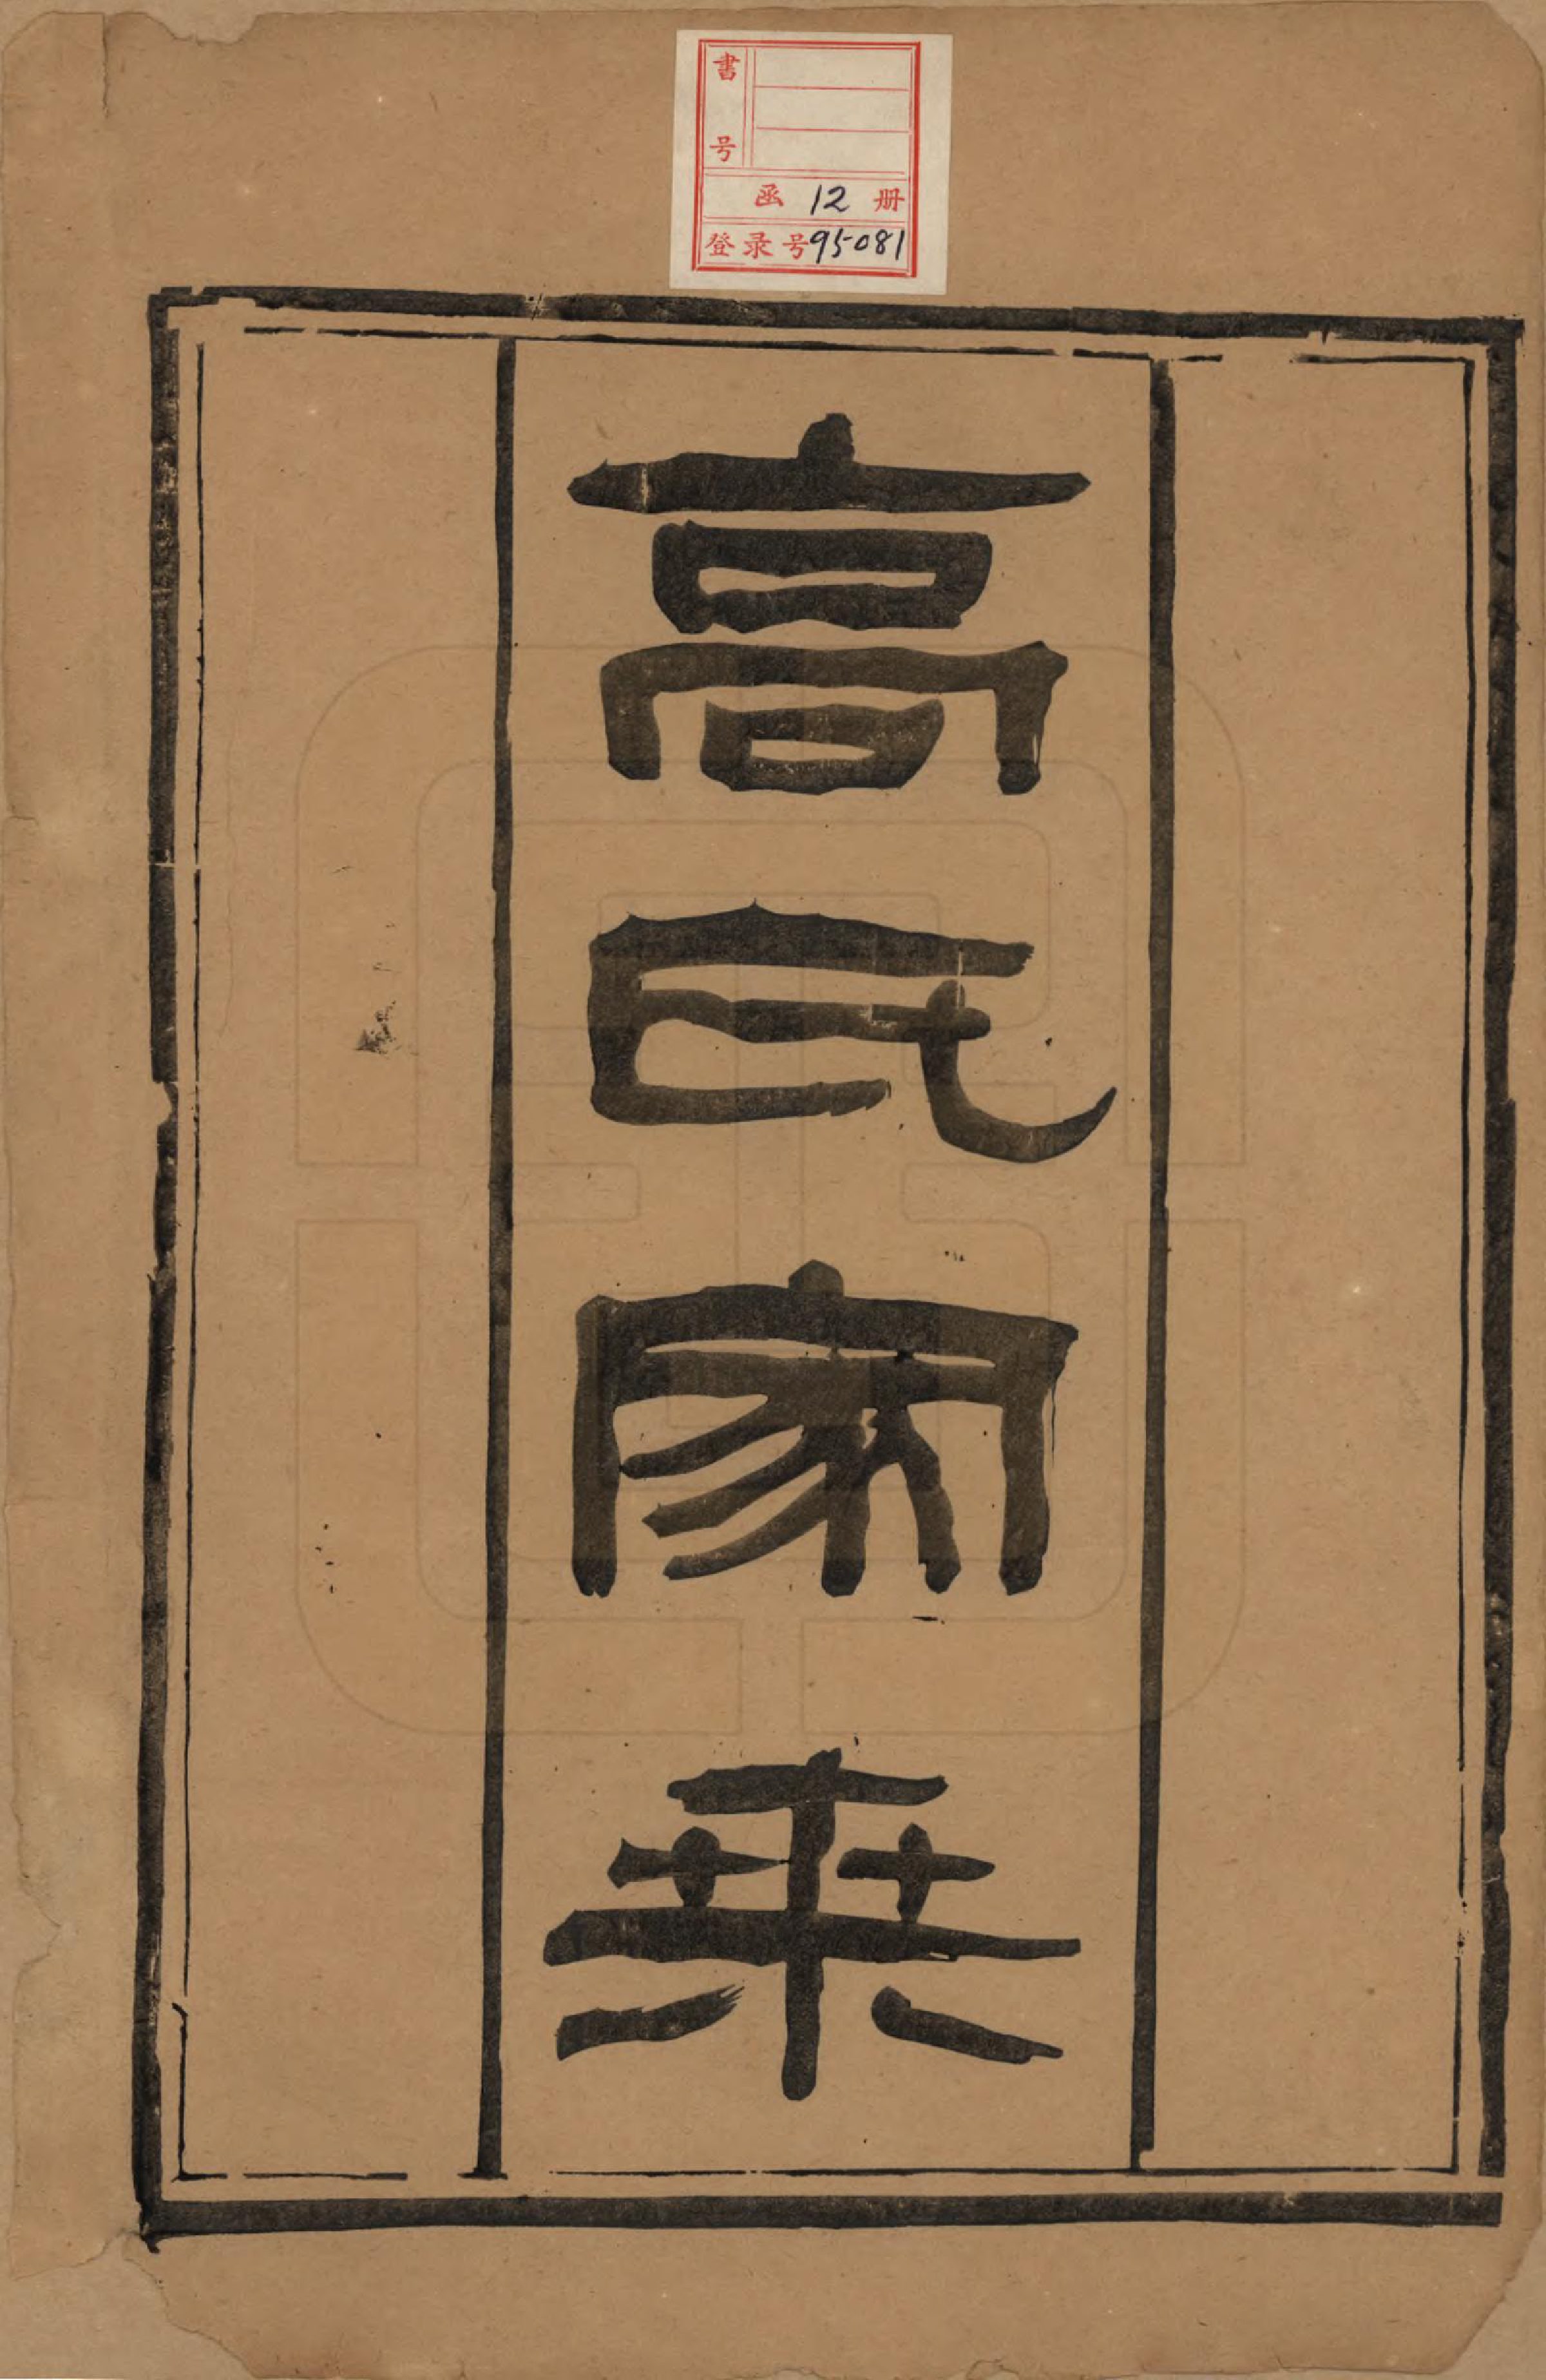 書号
函 12 册
登录号95-081
高氏家乗